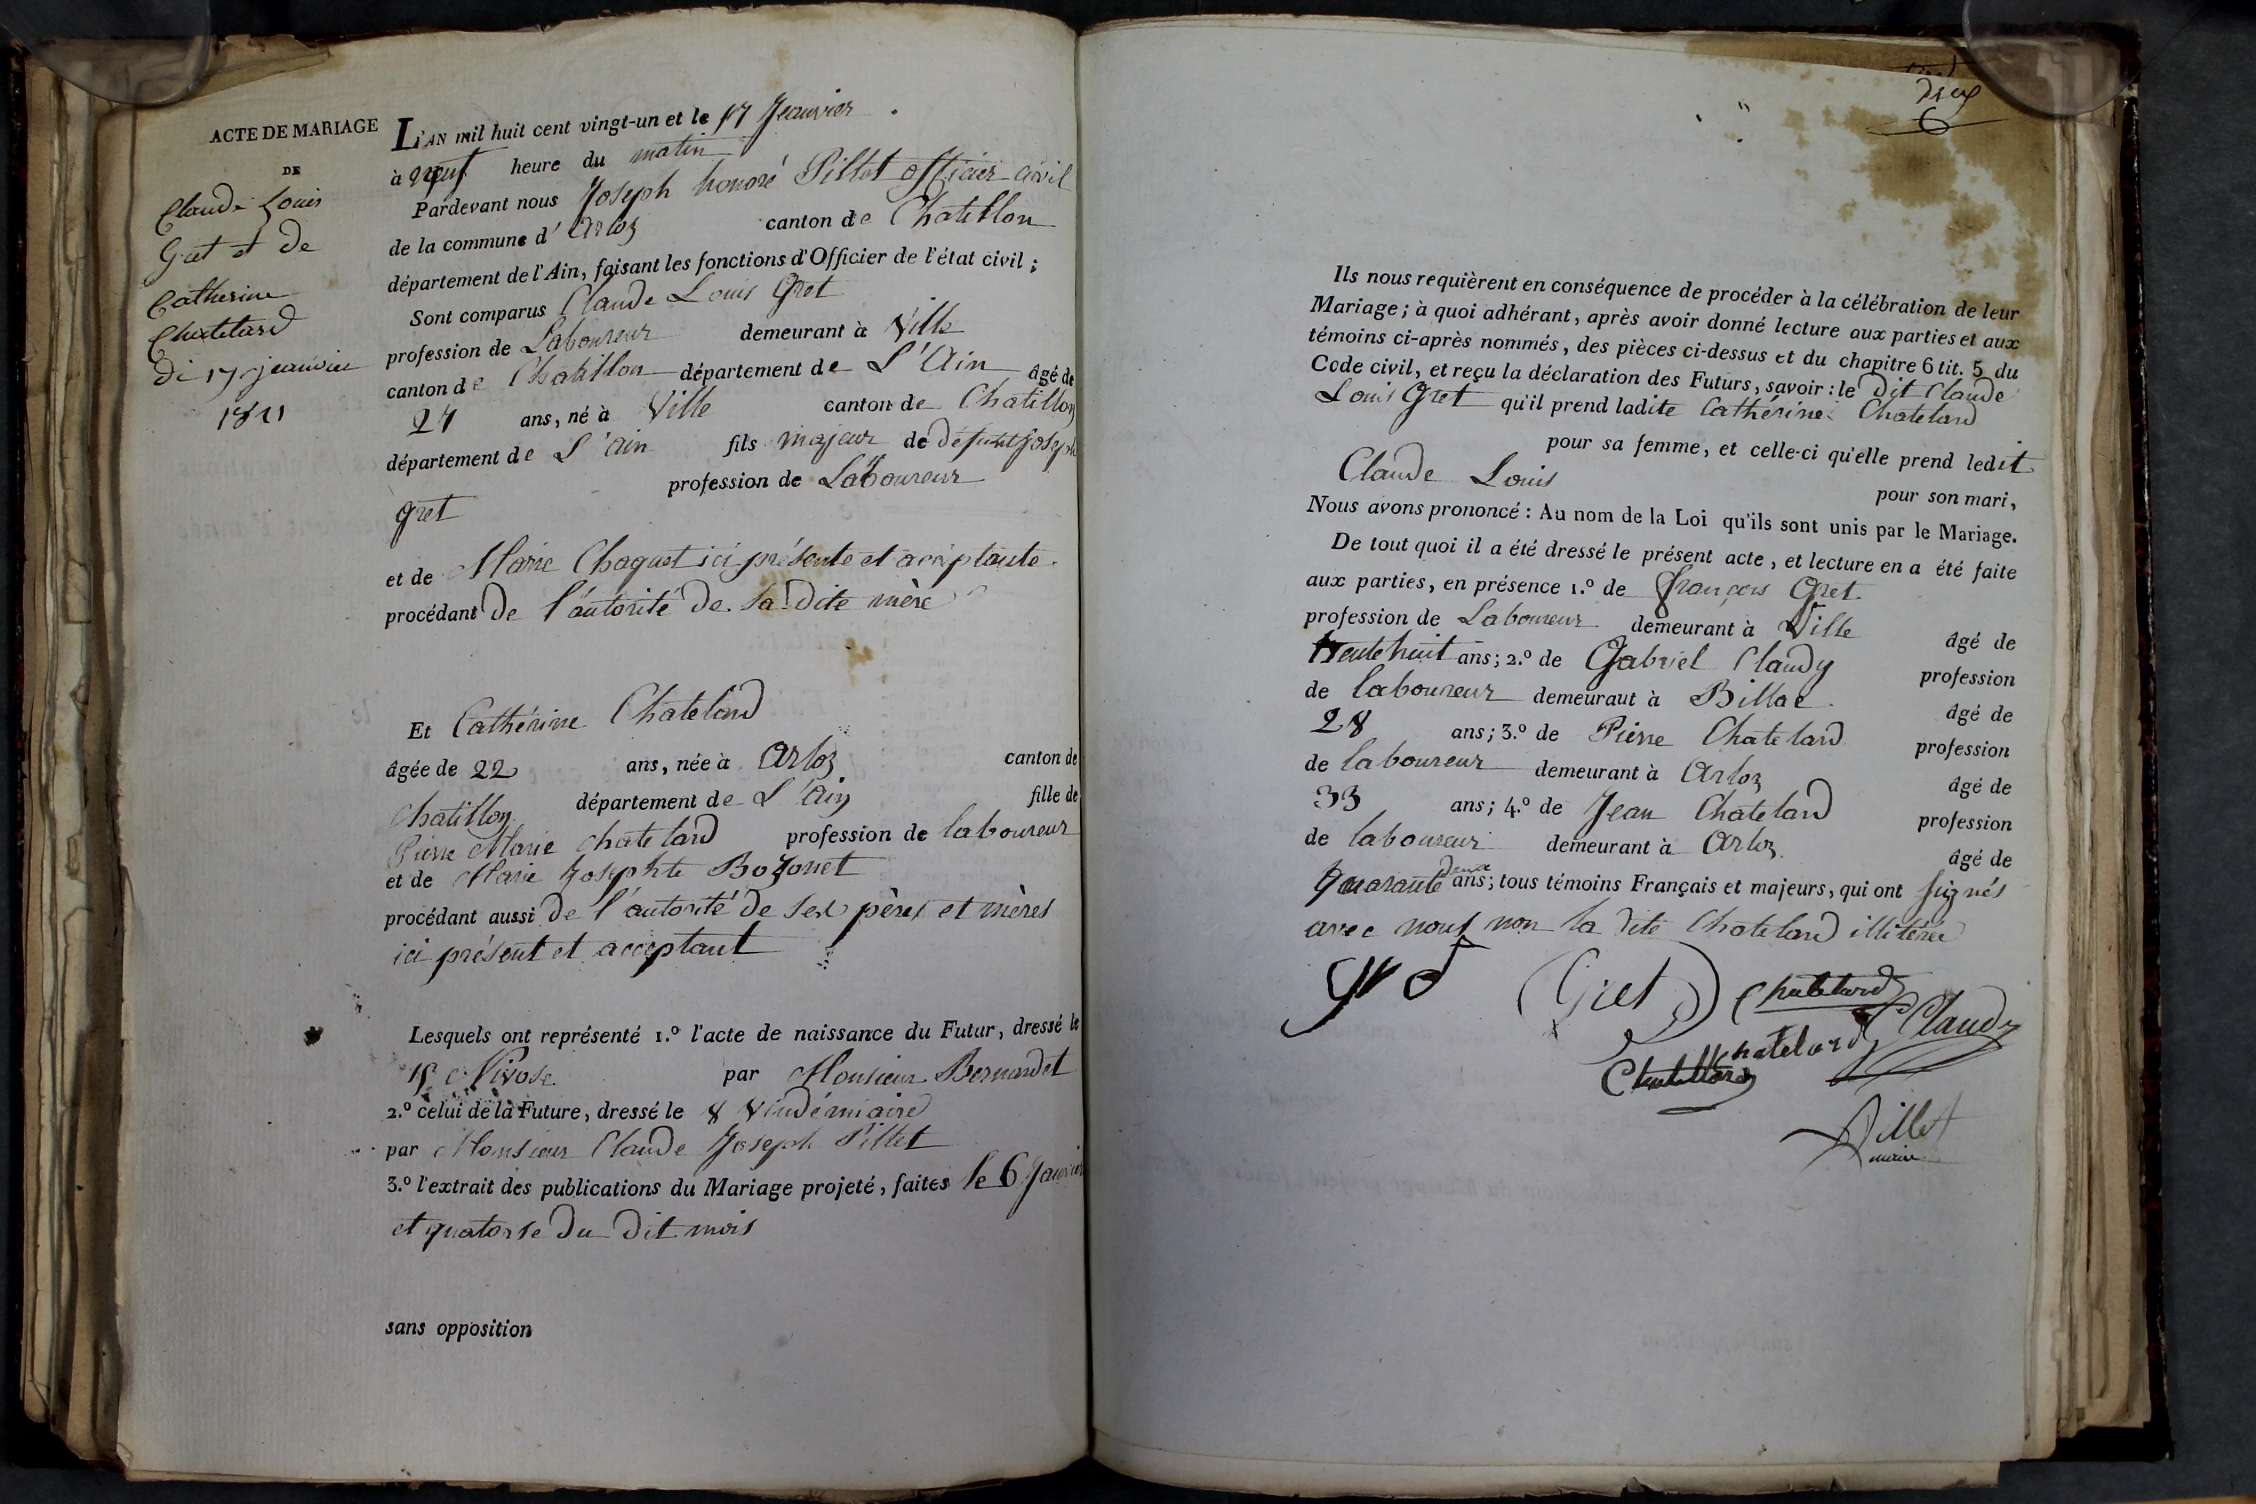 ACTE DE MARIAGE
DE
Claude Louis
Gret et de
Catherine
Chatelard
di 17 jeanvier
1821
L'AN mil huit cent vingt-un et le 17 Jeanvier
à neuf heure du matin
Pardevant nous Joseph honoré Pillet officier civil
de la commune d' Arloz canton de Chatillon
département de l'Ain, faisant les fonctions d'Officier de l'état civil ;
Sont comparus Claude Louis Gret
profession de Laboureur demeurant à Ville
canton de Chatillon département de L'Ain âgé de
27 ans, né à Ville canton de Chatillon
département de L'ain fils majeur de défunt Joseph
profession de Laboureur
gret
et de Marie Chaquet ici présente et acceptante
procédant de l'autorité de sa dite mère
Et Cathérine Chatelard
âgée de 22 ans, née à Arloz canton de
Chatillon département de L'Ain fille de
Pierre Marie Chatelard profession de laboureur
et de Marie Josephte Bozonet
procédant aussi de l'autorité de ses pères et mères
ici présent et acceptant
Lesquels ont représenté 1.º l'acte de naissance du Futur, dressé le
15 Nivose par Monsieur Bernardet
2.º celui de la Future, dressé le 8 Vindémiaire
par Monsieur Claude Joseph Pillet
3.º l'extrait des publications du Mariage projeté, faites le 6 Janvier
et quatorse du dit mois
sans opposition
deux
6
Ils nous requièrent en conséquence de procéder à la célébration de leur
Mariage ; à quoi adhérant, après avoir donné lecture aux parties et aux
témoins ci-après nommés, des pièces ci-dessus et du chapitre 6 tit. 5 du
Code civil, et reçu la déclaration des Futurs, savoir : le dit Claude
Louis Gret qu'il prend ladite Cathérine Chatelard
pour sa femme, et celle-ci qu'elle prend ledit
Claude Louis
pour son mari,
Nous avons prononcé : Au nom de la Loi qu'ils sont unis par le Mariage.
De tout quoi il a été dressé le présent acte, et lecture en a été faite
aux parties, en présence 1.º de françois Gret
profession de Laboureur demeurant à Ville âgé de
trente huit ans ; 2.º de Gabriel Claudy profession
de laboureur demeurant à Billac âgé de
28 ans ; 3.º de Pierre Chatelard profession
de laboureur demeurant à Arloz âgé de
33 ans ; 4.º de Jean Chatelard profession
de laboureur demeurant à Arloz âgé de
quarante deux ans ; tous témoins Français et majeurs, qui ont signés
avec nous non la dite Chatelard illitérée
Gret Chatelard
Claudy
Chatelard
Chatellard
Pillet
maire